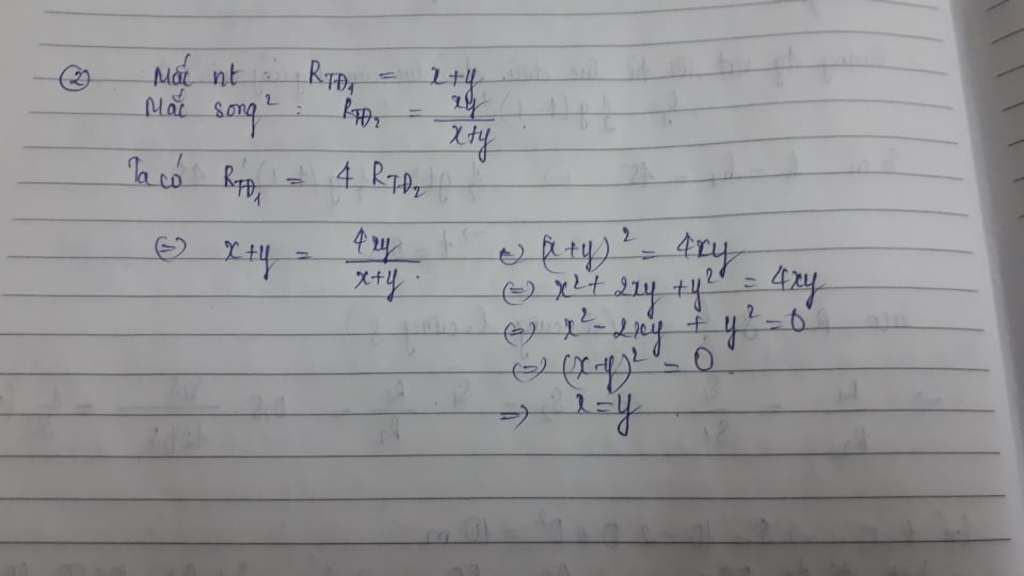 ② Mắc nt : R_TĐ₁ = x+y
Mắc song² : R_TĐ₂ = xy/(x+y)
Ta có R_TĐ₁ = 4 R_TĐ₂
(=) x+y = 4xy/(x+y).
(=) (x+y)² = 4xy
(=) x²+ 2xy +y² = 4xy
(=) x²- 2xy + y² = 0
(=) (x-y)² = 0
=) x=y